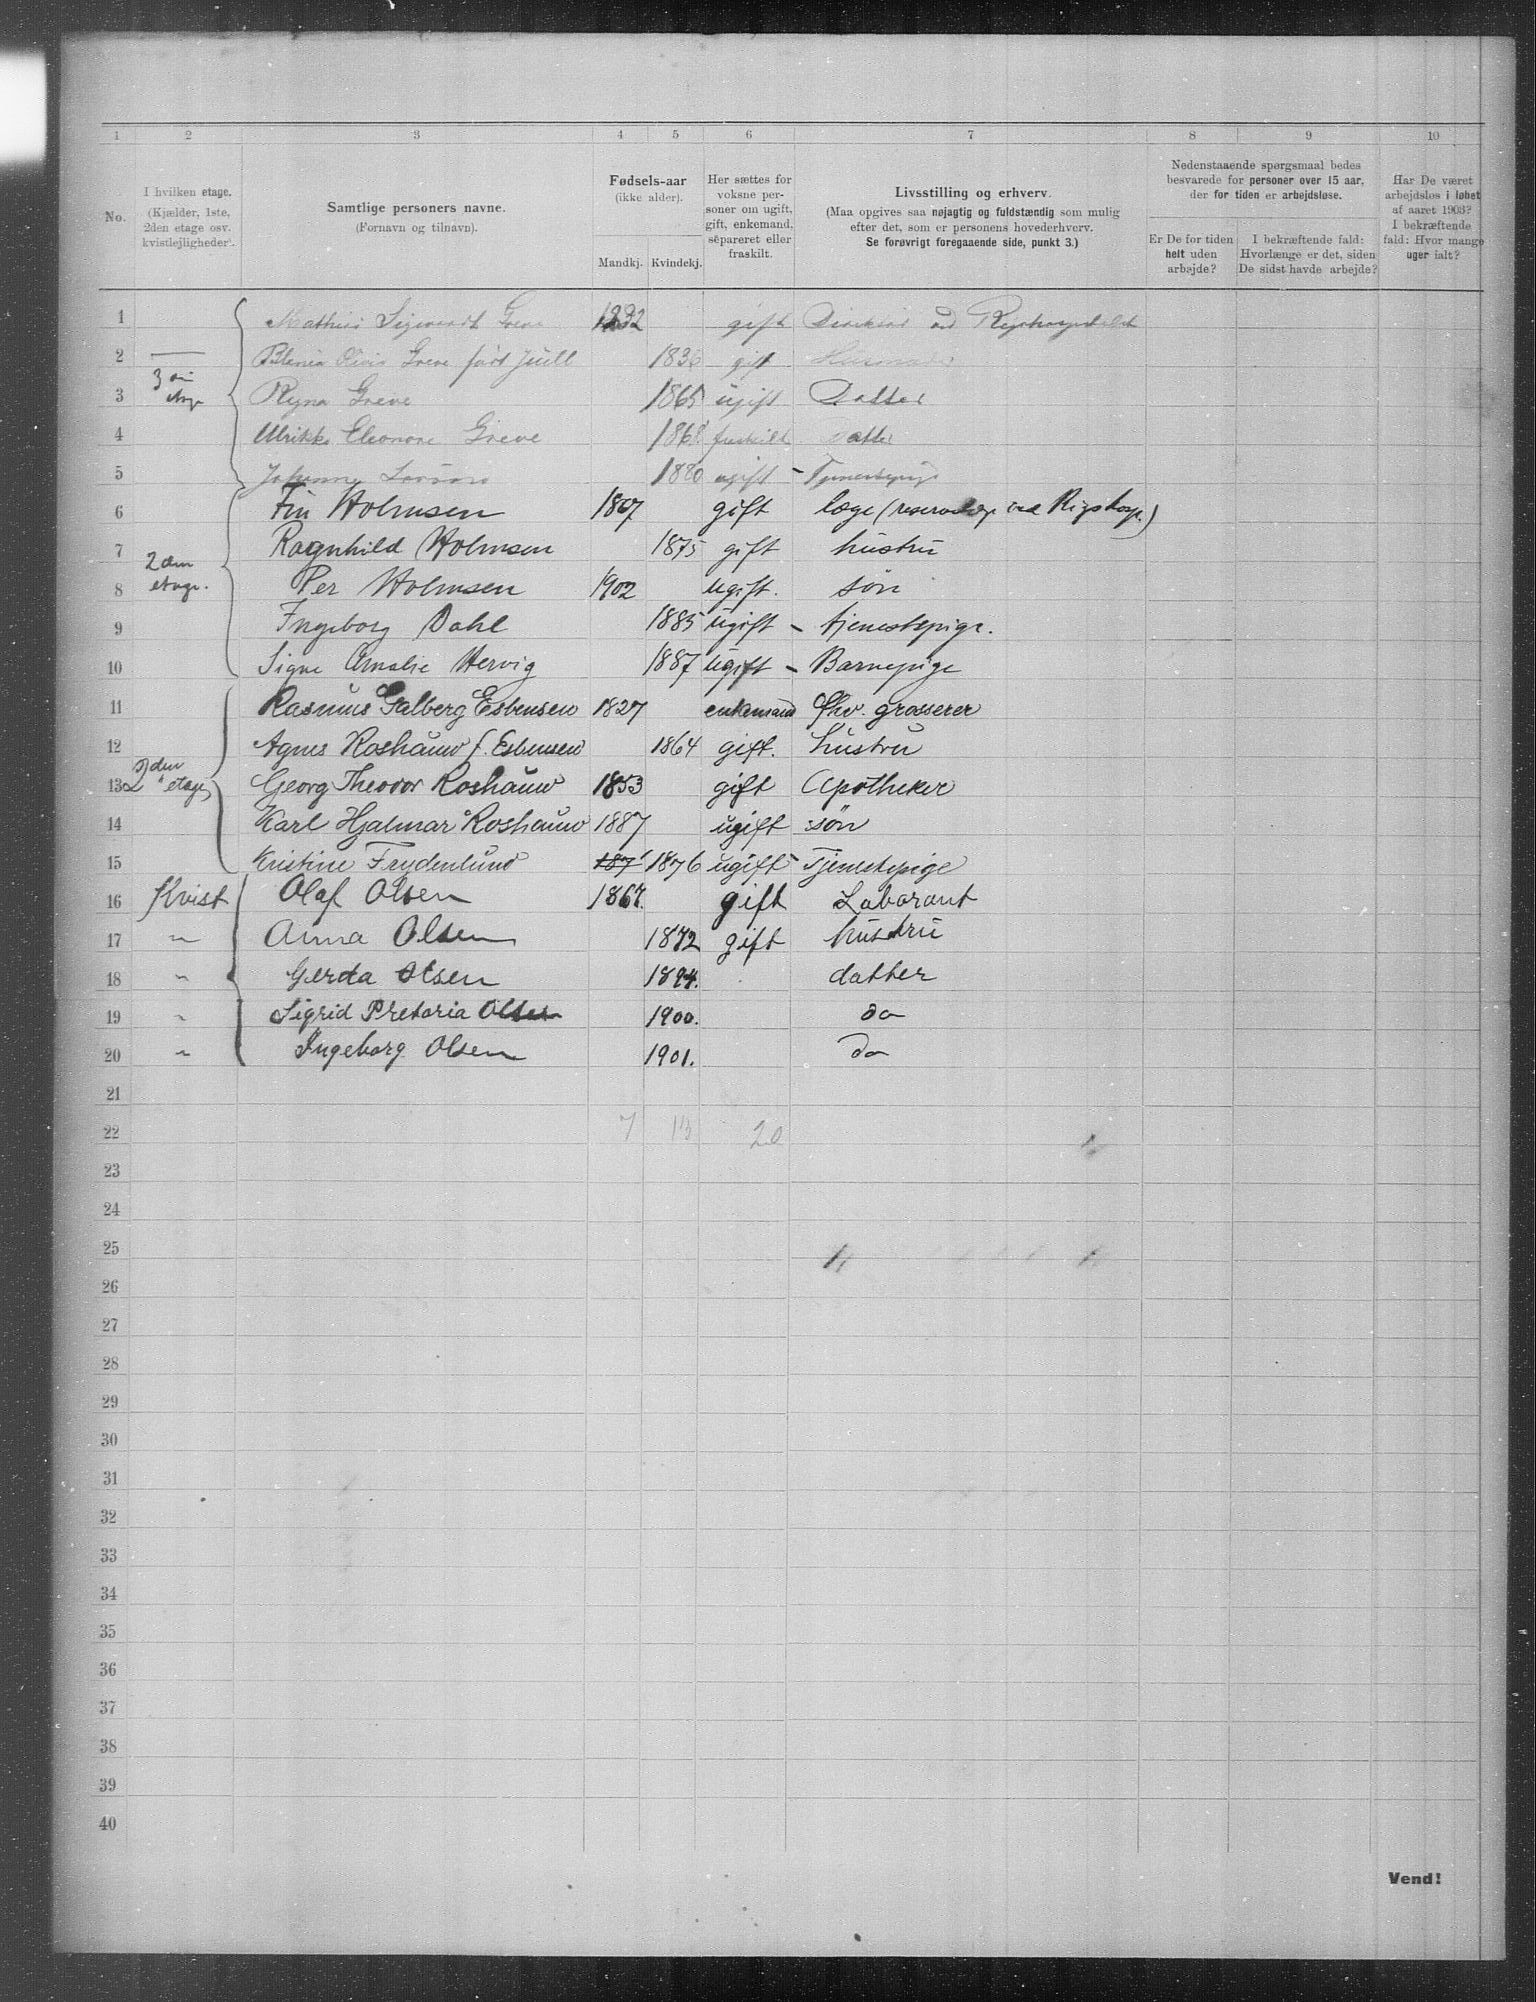 1 2 3 4 5 6 7 8 9 10
No.
I hvilken etage.
(Kjælder, 1ste,
2den etage osv.
kvistlejligheder).
Samtlige personers navne.
(Fornavn og tilnavn).
Fødsels-aar
(ikke alder).
Mandkj. Kvindekj.
Her sættes for
voksne per-
soner om ugift,
gift, enkemand,
separeret eller
fraskilt.
Livsstilling og erhverv.
(Maa opgives saa nøjagtig og fuldstændig som mulig
efter det, som er personens hovederhverv.
Se forøvrigt foregaaende side, punkt 3.)
Nedenstaaende spørgsmaal bedes
besvarede for personer over 15 aar,
der for tiden er arbejdsløse.
Er De for tiden
helt uden
arbejde?
I bekræftende fald:
Hvorlænge er det, siden
De sidst havde arbejde?
Har De været
arbejdsløs i løbet
af aaret 1903?
I bekræftende
fald: Hvor mange
uger ialt?
1 Greve 1832 gift
2 Olivia Greve født Juell 1836 gift
3 Greve 1865 ugift Datter
4 Ulrikke Eleonore Greve 1868 fraskilt Datter
5 1880 ugift - Tjenestepige
6 Fin Holmsen gift læge (reservelæge ved Rigshosp.)
7 Ragnhild Holmsen 1875 gift hustru
2den
etage.
8 Per Holmsen 1902 ugift. søn
9 Ingeborg Dahl 1885 ugift - tjenestepige.
10 Signe Amalie Hervig 1887 ugift - Barnepige
11 Rasmus Galberg Esbensen 1827 enkemand fhv. grosserer
12 Agnes Roshauw f. Esbensen 1864 gift. hustru
2den
etage
13 Georg Theodor Roshauw 1853 gift Apotheker
14 Karl Hjalmar Roshauw 1887 ugift søn
15 Kristine Frydenlund 187 1876 ugift - Tjenestepige
16 Kvist Olaf Olsen 1867. gift Laborant
17 " Anna Olsen 1872 gift hustru
18 " Gerda Olsen 1894. datter
19 " Sigrid Pretoria Olsen 1900. do
20 " Ingeborg Olsen 1901. do
21
22 7 13 20
23
24
25
26
27
28
29
30
31
32
33
34
35
36
37
38
39
40
Vend!